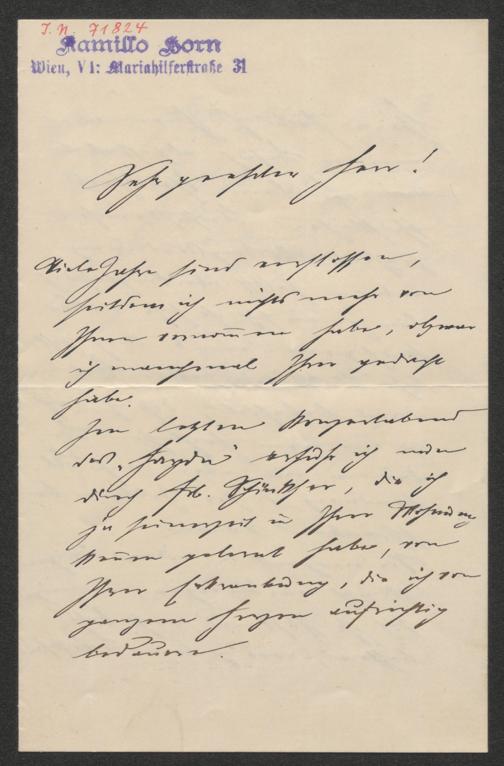 I. N. 71824
Kamillo Horn
Wien, VI: Mariahilferstraße 31
Sehr geehrter Herr!
Viele Jahre sind verflossen,
seitdem ich nichts mehr von
Ihnen vernommen habe, obzwar
ich manchmal Ihrer gedacht
habe.
Im letzten Konzertabend
des „Haydn“ erfuhr ich nun
durch Frl. , die ich
zu seinerzeit in Ihrer Wohnung
kennen gelernt habe, von
Ihrer Erkrankung, die ich von
ganzem Herzen aufrichtig
bedauere.